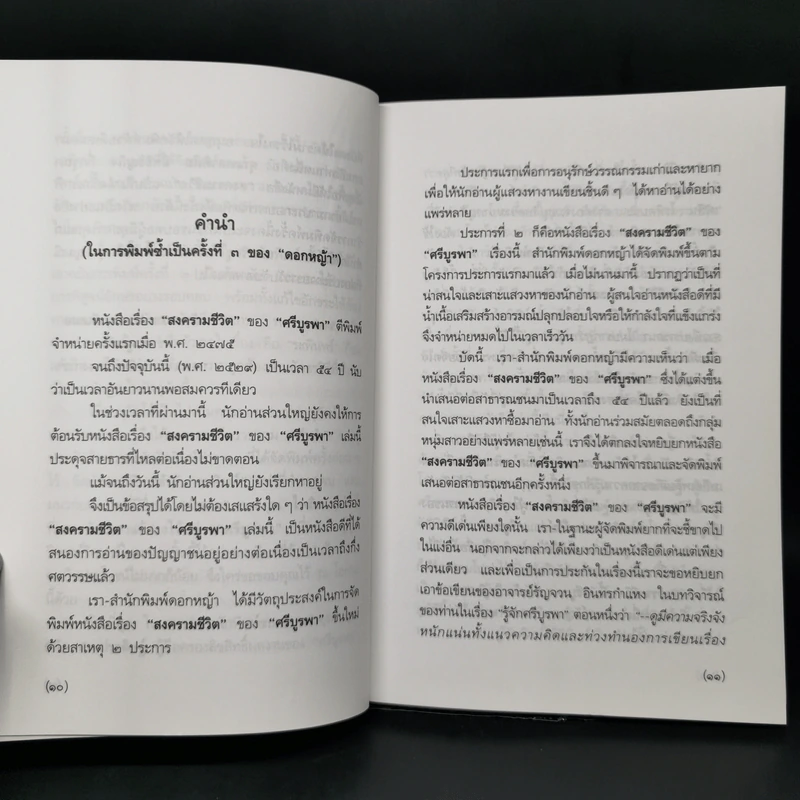 คำนำ
(ในการพิมพ์ซ้ำเป็นครั้งที่ ๓ ของ “ดอกหญ้า”)
หนังสือเรื่อง “สงครามชีวิต” ของ “ศรีบูรพา” ตีพิมพ์
จำหน่ายครั้งแรกเมื่อ พ.ศ. ๒๔๗๕
จนถึงปัจจุบันนี้ (พ.ศ. ๒๕๒๙) เป็นเวลา ๕๔ ปี นับ
ว่าเป็นเวลาอันยาวนานพอสมควรทีเดียว
ในช่วงเวลาที่ผ่านมานี้ นักอ่านส่วนใหญ่ยังคงให้การ
ต้อนรับหนังสือเรื่อง “สงครามชีวิต” ของ “ศรีบูรพา” เล่มนี้
ประดุจสายธารที่ไหลต่อเนื่องไม่ขาดตอน
แม้จนถึงวันนี้ นักอ่านส่วนใหญ่ยังเรียกหาอยู่
จึงเป็นข้อสรุปได้โดยไม่ต้องเสแสร้งใด ๆ ว่า หนังสือเรื่อง
“สงครามชีวิต” ของ “ศรีบูรพา” เล่มนี้ เป็นหนังสือดีที่ได้
สนองการอ่านของปัญญาชนอยู่อย่างต่อเนื่องเป็นเวลาถึงกึ่ง
ศตวรรษแล้ว
เรา-สำนักพิมพ์ดอกหญ้า ได้มีวัตถุประสงค์ในการจัด
พิมพ์หนังสือเรื่อง “สงครามชีวิต” ของ “ศรีบูรพา” ขึ้นใหม่
ด้วยสาเหตุ ๒ ประการ
(๑๐)
ประการแรกเพื่อการอนุรักษ์วรรณกรรมเก่าและหายาก
เพื่อให้นักอ่านผู้แสวงหางานเขียนชิ้นดี ๆ ได้หาอ่านได้อย่าง
แพร่หลาย
ประการที่ ๒ ก็คือหนังสือเรื่อง “สงครามชีวิต” ของ
“ศรีบูรพา” เรื่องนี้ สำนักพิมพ์ดอกหญ้าได้จัดพิมพ์ขึ้นตาม
โครงการประการแรกมาแล้ว เมื่อไม่นานมานี้ ปรากฏว่าเป็นที่
น่าสนใจและเสาะแสวงหาของนักอ่าน ผู้สนใจอ่านหนังสือดีที่มี
น้ำเนื้อเสริมสร้างอารมณ์ปลุกปลอบใจหรือให้กำลังใจที่แข็งแกร่ง
จึงจำหน่ายหมดไปในเวลาเร็ววัน
บัดนี้ เรา-สำนักพิมพ์ดอกหญ้ามีความเห็นว่า เมื่อ
หนังสือเรื่อง “สงครามชีวิต” ของ “ศรีบูรพา” ซึ่งได้แต่งขึ้น
นำเสนอต่อสาธารณชนมาเป็นเวลาถึง ๕๔ ปีแล้ว ยังเป็นที่
สนใจเสาะแสวงหาซื้อมาอ่าน ทั้งนักอ่านร่วมสมัยตลอดถึงกลุ่ม
หนุ่มสาวอย่างแพร่หลายเช่นนี้ เราจึงได้ตกลงใจหยิบยกหนังสือ
“สงครามชีวิต” ของ “ศรีบูรพา” ขึ้นมาพิจารณาและจัดพิมพ์
เสนอต่อสาธารณชนอีกครั้งหนึ่ง
หนังสือเรื่อง “สงครามชีวิต” ของ “ศรีบูรพา” จะมี
ความดีเด่นเพียงใดนั้น เรา-ในฐานะผู้จัดพิมพ์ยากที่จะชี้ขาดไป
ในแง่อื่น นอกจากจะกล่าวได้เพียงว่าเป็นหนังสือดีเด่นแต่เพียง
ส่วนเดียว และเพื่อเป็นการประกันในเรื่องนี้เราจะขอหยิบยก
เอาข้อเขียนของอาจารย์รัญจวน อินทรกำแหง ในบทวิจารณ์
ของท่านในเรื่อง “รู้จักศรีบูรพา” ตอนหนึ่งว่า “--ดูมีความจริงจัง
หนักแน่นทั้งแนวความคิดและท่วงทำนองการเขียนเรื่อง
(๑๑)